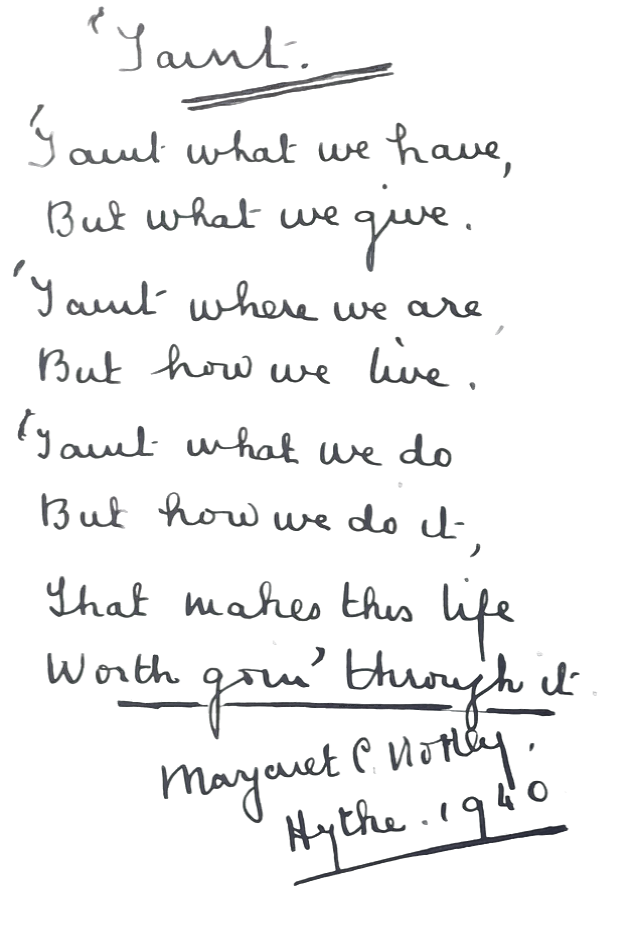 'Taint.
'Taint what we have,
But what we give.
'Taint where we are,
But how we live.
'Taint what we do
But how we do it,
That makes this life
Worth goin' through it.
Margaret C. Notley.
Hythe. 1940